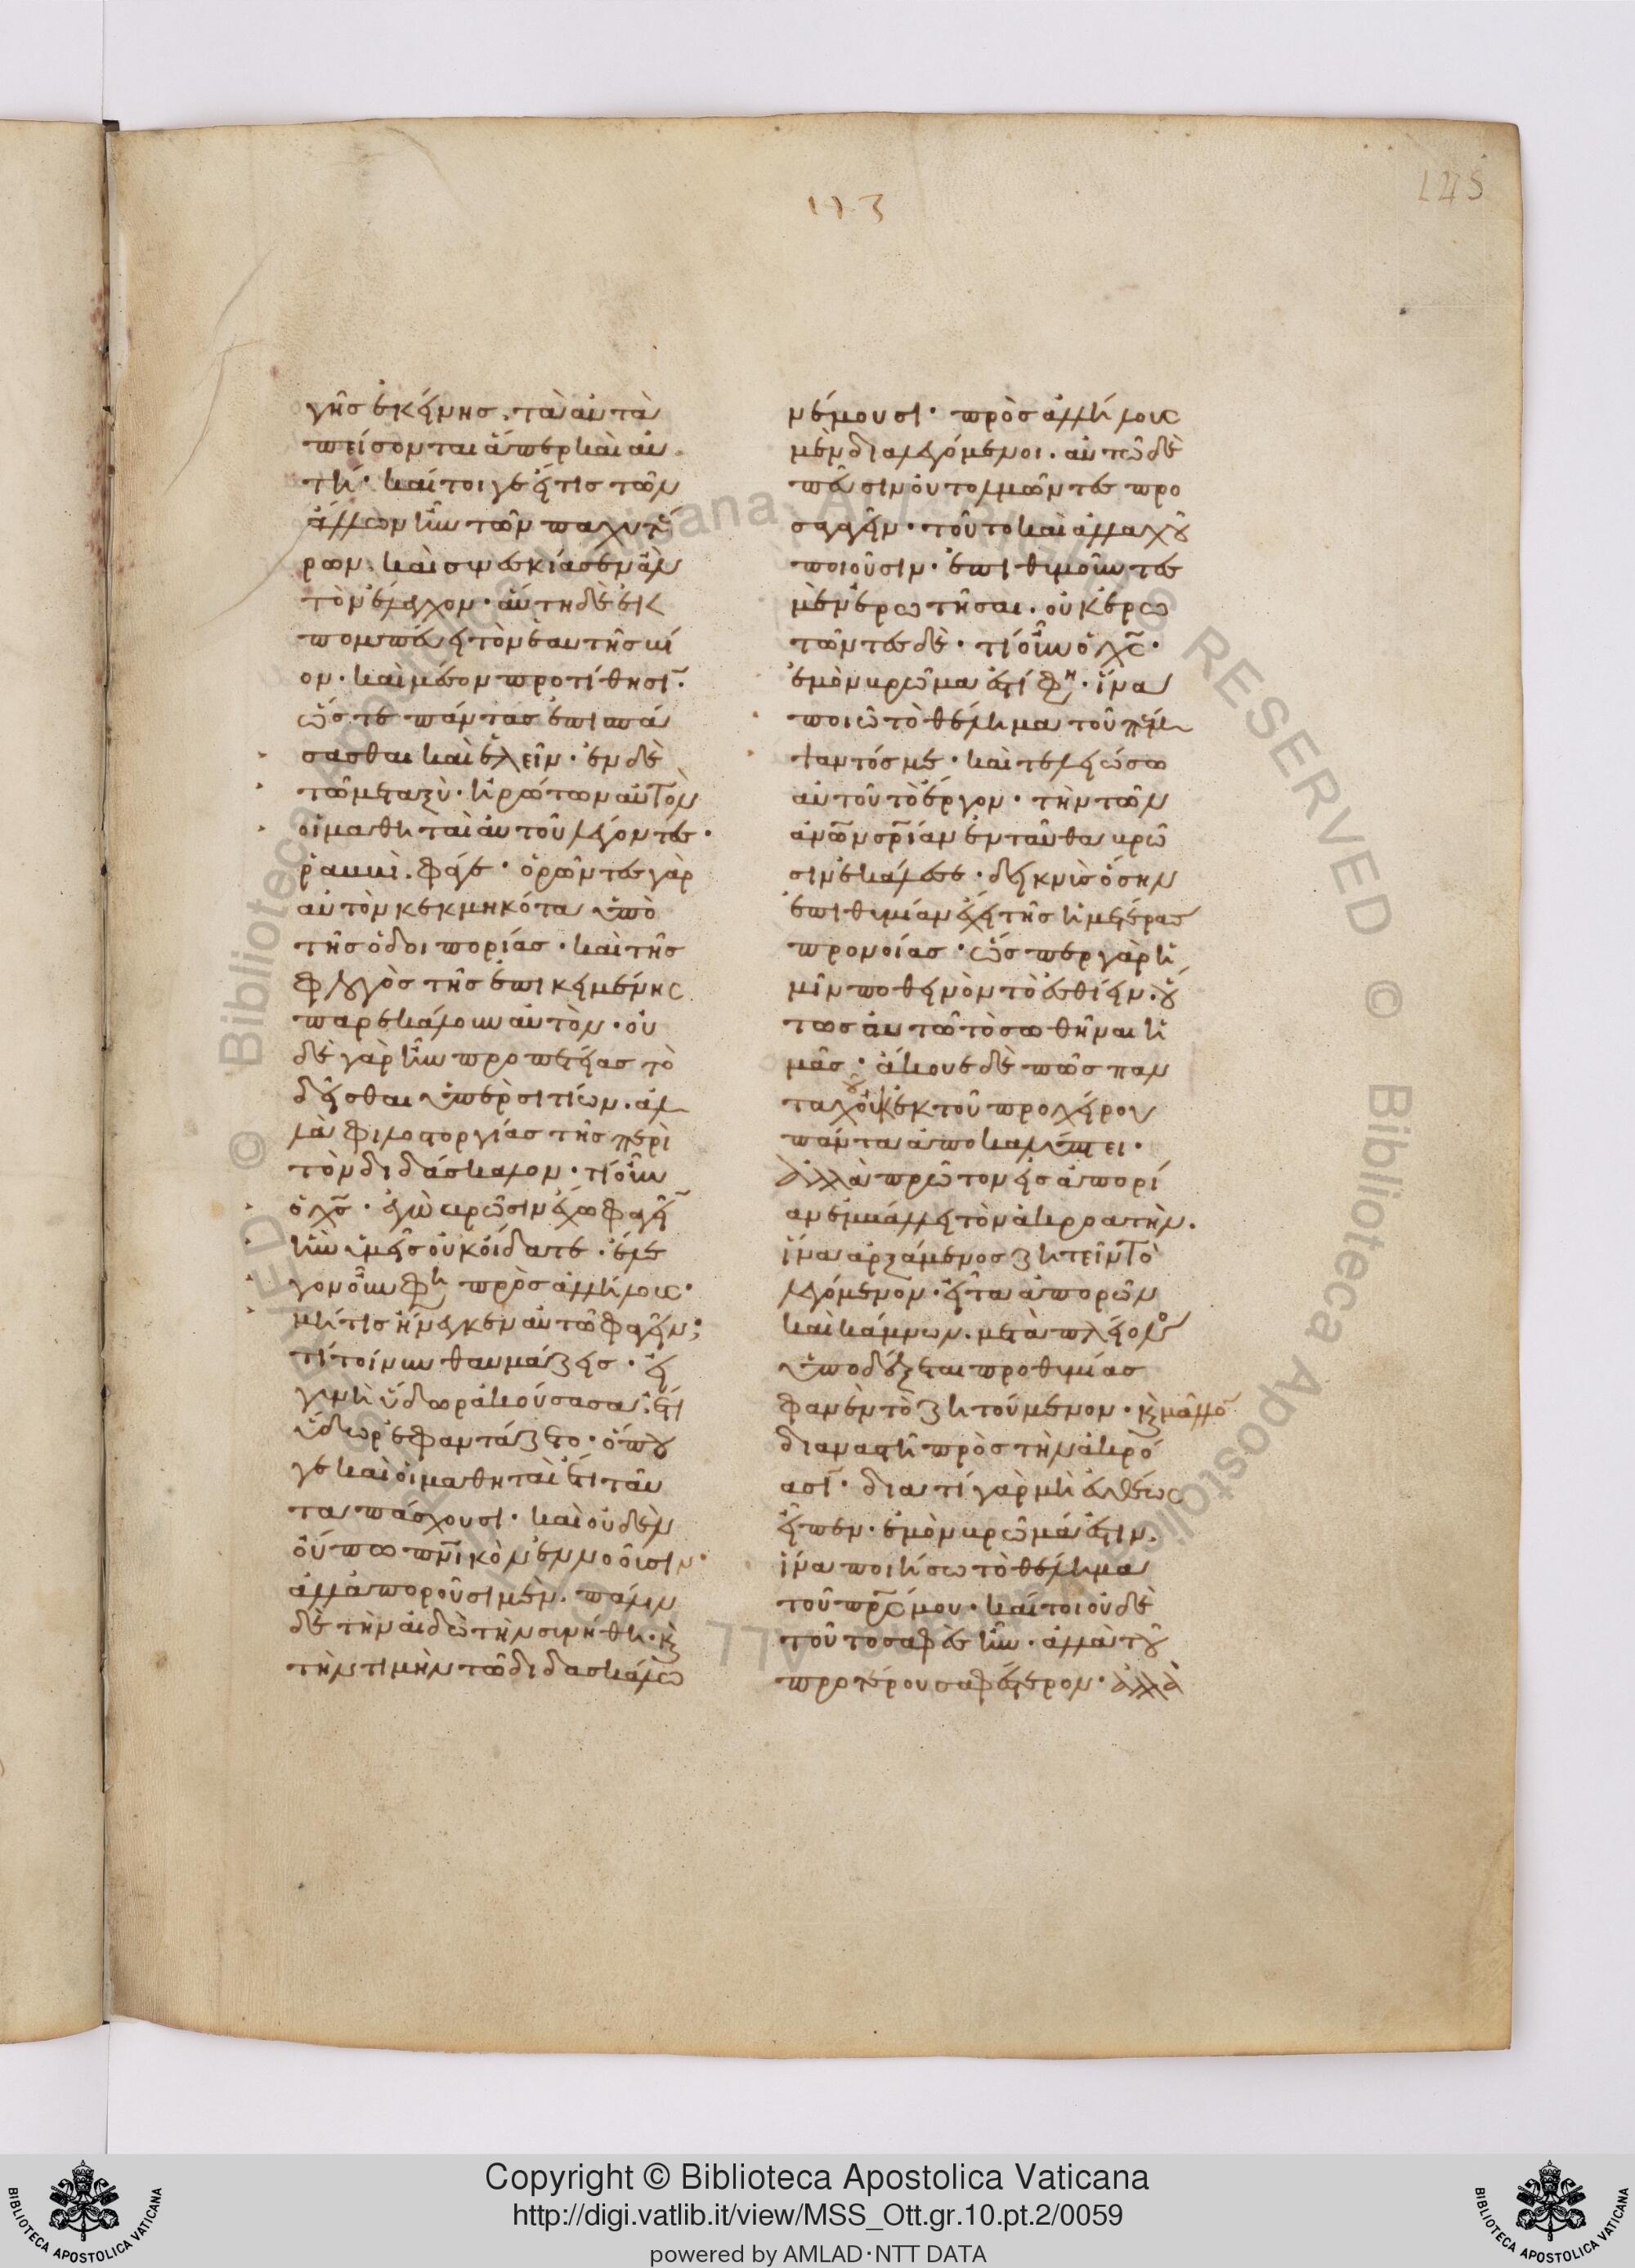 γῆς ἐκείνης. τὰ αὐτὰ
πείσονται ἅπερ καὶ αὐ
τή. καίτοιγε εἴ τις τῶν
ἄλλων ἦν τῶν παχυτέ
ρων. καὶ συνεσκίασεν ἂν
τὸν ἔλεγχον. αὕτη δὲ ἐκ
πομπεύει τὸν ἑαυτῆς βί
ον. καὶ μέσον προτίθησι.
ὥστε πάντας ἐπισπά
σασθαι καὶ ἑλεῖν. ἐν δὲ
τῷ μεταξὺ. ἠρώτων αὐτὸν
οἱ μαθηταὶ αὐτοῦ λέγοντες.
ῥαββὶ. φάγε. ὁρῶντες γὰρ
αὐτὸν κεκμηκότα ὑπὸ
τῆς ὁδοιπορίας. καὶ τῆς
φλογὸς τῆς ἐπικειμένης
παρεκάλουν αὐτόν. οὐ
δὲ γὰρ ἦν προπετείας τὸ
δεῖσθαι ὑπὲρ σιτίων. ἀλ
λὰ φιλοστοργίας τῆς περὶ
τὸν διδάσκαλον. τί οὖν
ὁ χς. ἐγὼ βρῶσιν ἔχω φαγεῖ
ἣν ὑμεῖς οὐκ οἴδατε. ἔλε
γον οὖν φη πρὸς ἀλλήλους.
μή τις ἤνεγκεν αὐτῷ φαγεῖν;
τί τοίνυν θαυμάζεις. εἰ
γυνὴ ὕδωρ ἀκούσασα. ἔτι
ὕδωρ ἐφαντάζετο. ὅπου
γε καὶ οἱ μαθηταὶ ἔτι ταῦ
τα πάσχουσι. καὶ οὐδὲν
οὔπω πνικὸν ἐννοοῦσιν.
ἀλλ' ἀποροῦσι μέν. πάλιν
δὲ τὴν αἰδῶ τὴν συνήθη. κ
τὴν τιμὴν τῷ διδασκάλῳ
νέμουσι. πρὸς ἀλλήλους
μὲν διαλεγόμενοι. αὐτῷ δὲ
πεῦσιν οὐ τολμῶντες προ
σαγαγεῖν. τοῦτο καὶ ἀλλαχοῦ
ποιοῦσιν. ἐπιθυμοῦντες
μὲν ἐρωτῆσαι. οὐκ ἐρω
τῶντες δέ. τί οὖν ὁ χς.
ἐμὸν βρῶμα ἐστί φη. ἵνα
ποιῶ τὸ θέλημα τοῦ πέμ
ψαντός με. καὶ τελειώσω
αὐτοῦ τὸ ἔργον. τὴν τῶν
ανων σριαν ἐνταῦθα βρῶ
σιν ἐκάλεσε. δεικνὺς ὅσην
ἐπιθυμίαν ἔχει τῆς ἡμετέρας
προνοίας. ὥσπερ γὰρ ἡ
μῖν ποθεινὸν τὸ ἐσθίειν. οὕ
τως αὐτῷ τὸ σωθῆναι ἡ
μᾶς. ἄκουε δὲ πῶς παν
ταχοῦ οὐκ ἐκ τοῦ προχείρου
πάντα ἀποκαλύπτει.
ἀλλὰ πρῶτον εἰς ἀπορί
αν ἐμβάλλει τὸν ἀκροατήν.
ἵνα ἀρξάμενος ζητεῖν τὸ
λεγόμενον. εἶτα ἀπορῶν
καὶ κάμνων. μετὰ πλείονος
ὑποδέξηται προθυμίας
φανὲν τὸ ζητούμενον. κ μᾶλλο
διαναστῇ πρὸς τὴν ἀκρό
ασι. διατί γὰρ μὴ εὐθέως
εἶπεν. ἐμὸν βρῶμά ἐστιν.
ἵνα ποιήσω τὸ θέλημα
τοῦ πρς μου. καίτοι οὐδὲ
τοῦτο σαφὲς ἦν. ἀλλὰ τοῦ
προτέρου σαφέστερον. ἀλλὰ
Copyright © Biblioteca Apostolica Vaticana
http://digi.vatlib.it/view/MSS_Ott.gr.10.pt.2/0059
powered by AMLAD·NTT DATA